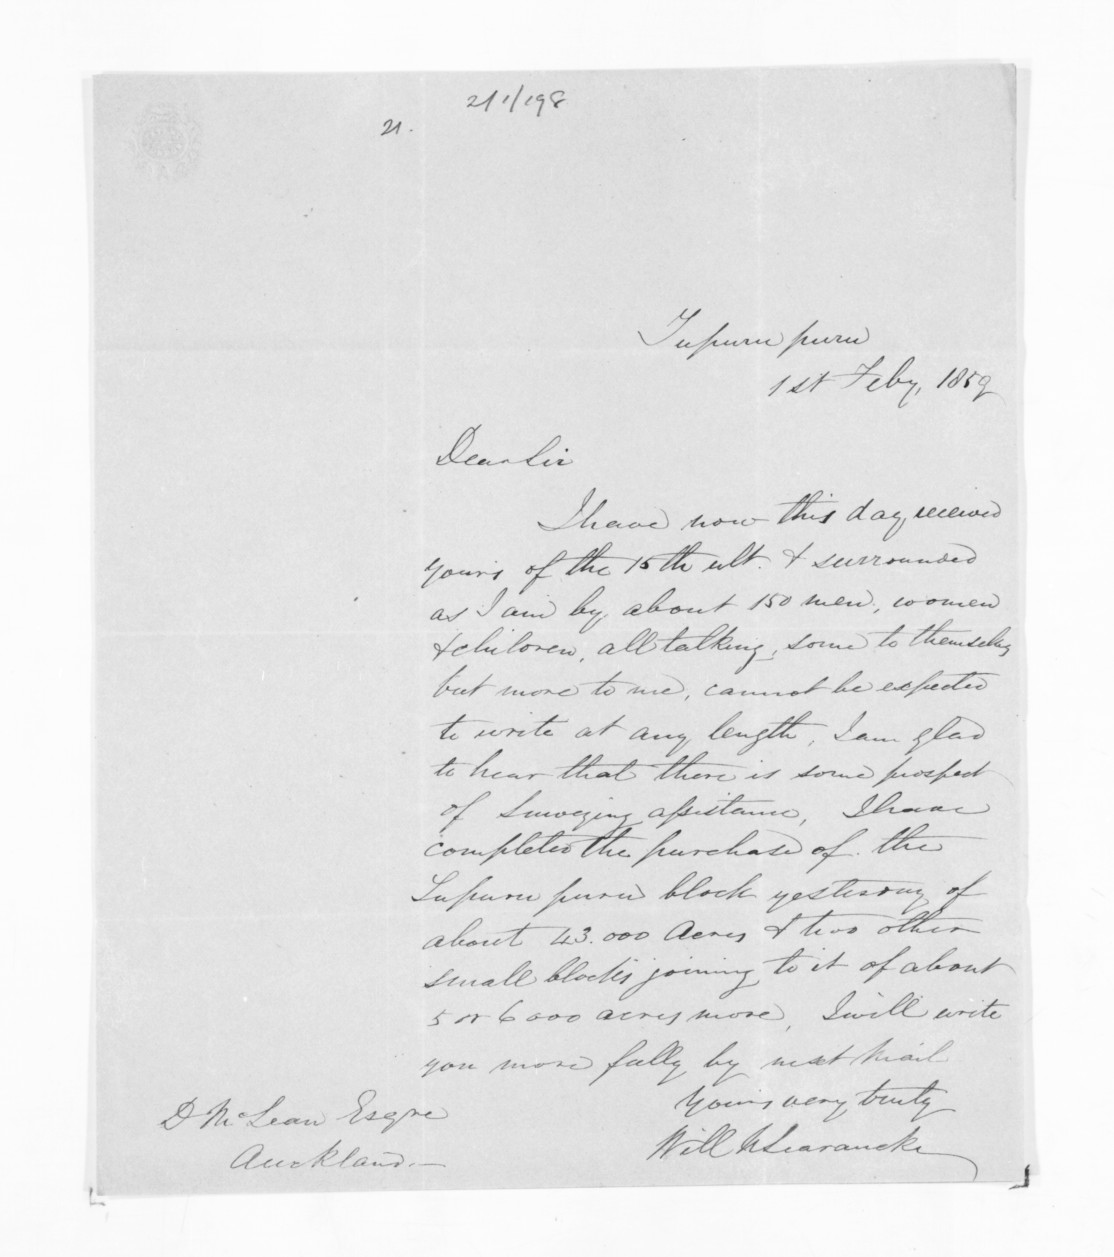 21/1/198
21.
Tupurupuru
1st Feby, 1859
Dear Sir
I have now this day received
yours of the 15th ult. & surrounded
as I am by about 150 men, women
& children, all talking, some to themselves
but more to me, cannot be expected
to write at any length, I am glad
to hear that there is some prospect
of Surveying assistance, I have
completed the purchase of the
Tupurupuru block yesterday of
about 43.000 Acres & two other
small blocks joining to it of about
5 or 6000 acres more, I will write
you more fully by next Mail
Yours very truly
Will N Searancke
D McLean Esqre
Auckland.—